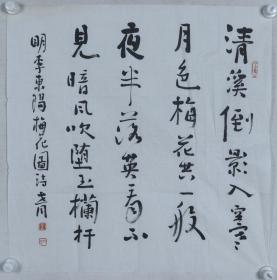 清溪倒影入寒空
月色梅花共一般
夜半落英看不
見暗风吹堕玉欄杆
明李東陽梅花圖詩